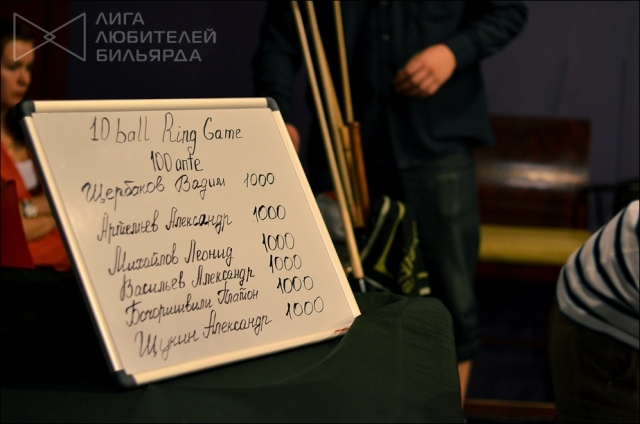 ЛИГА
ЛЮБИТЕЛЕЙ
БИЛЬЯРДА
10 ball Ring Game
100 ante
Щербаков Вадим 1000
Артемьев Александр 1000
Михайлов Леонид 1000
Васильев Александр 1000
Бочоришвили Платон 1000
Щукин Александр 1000